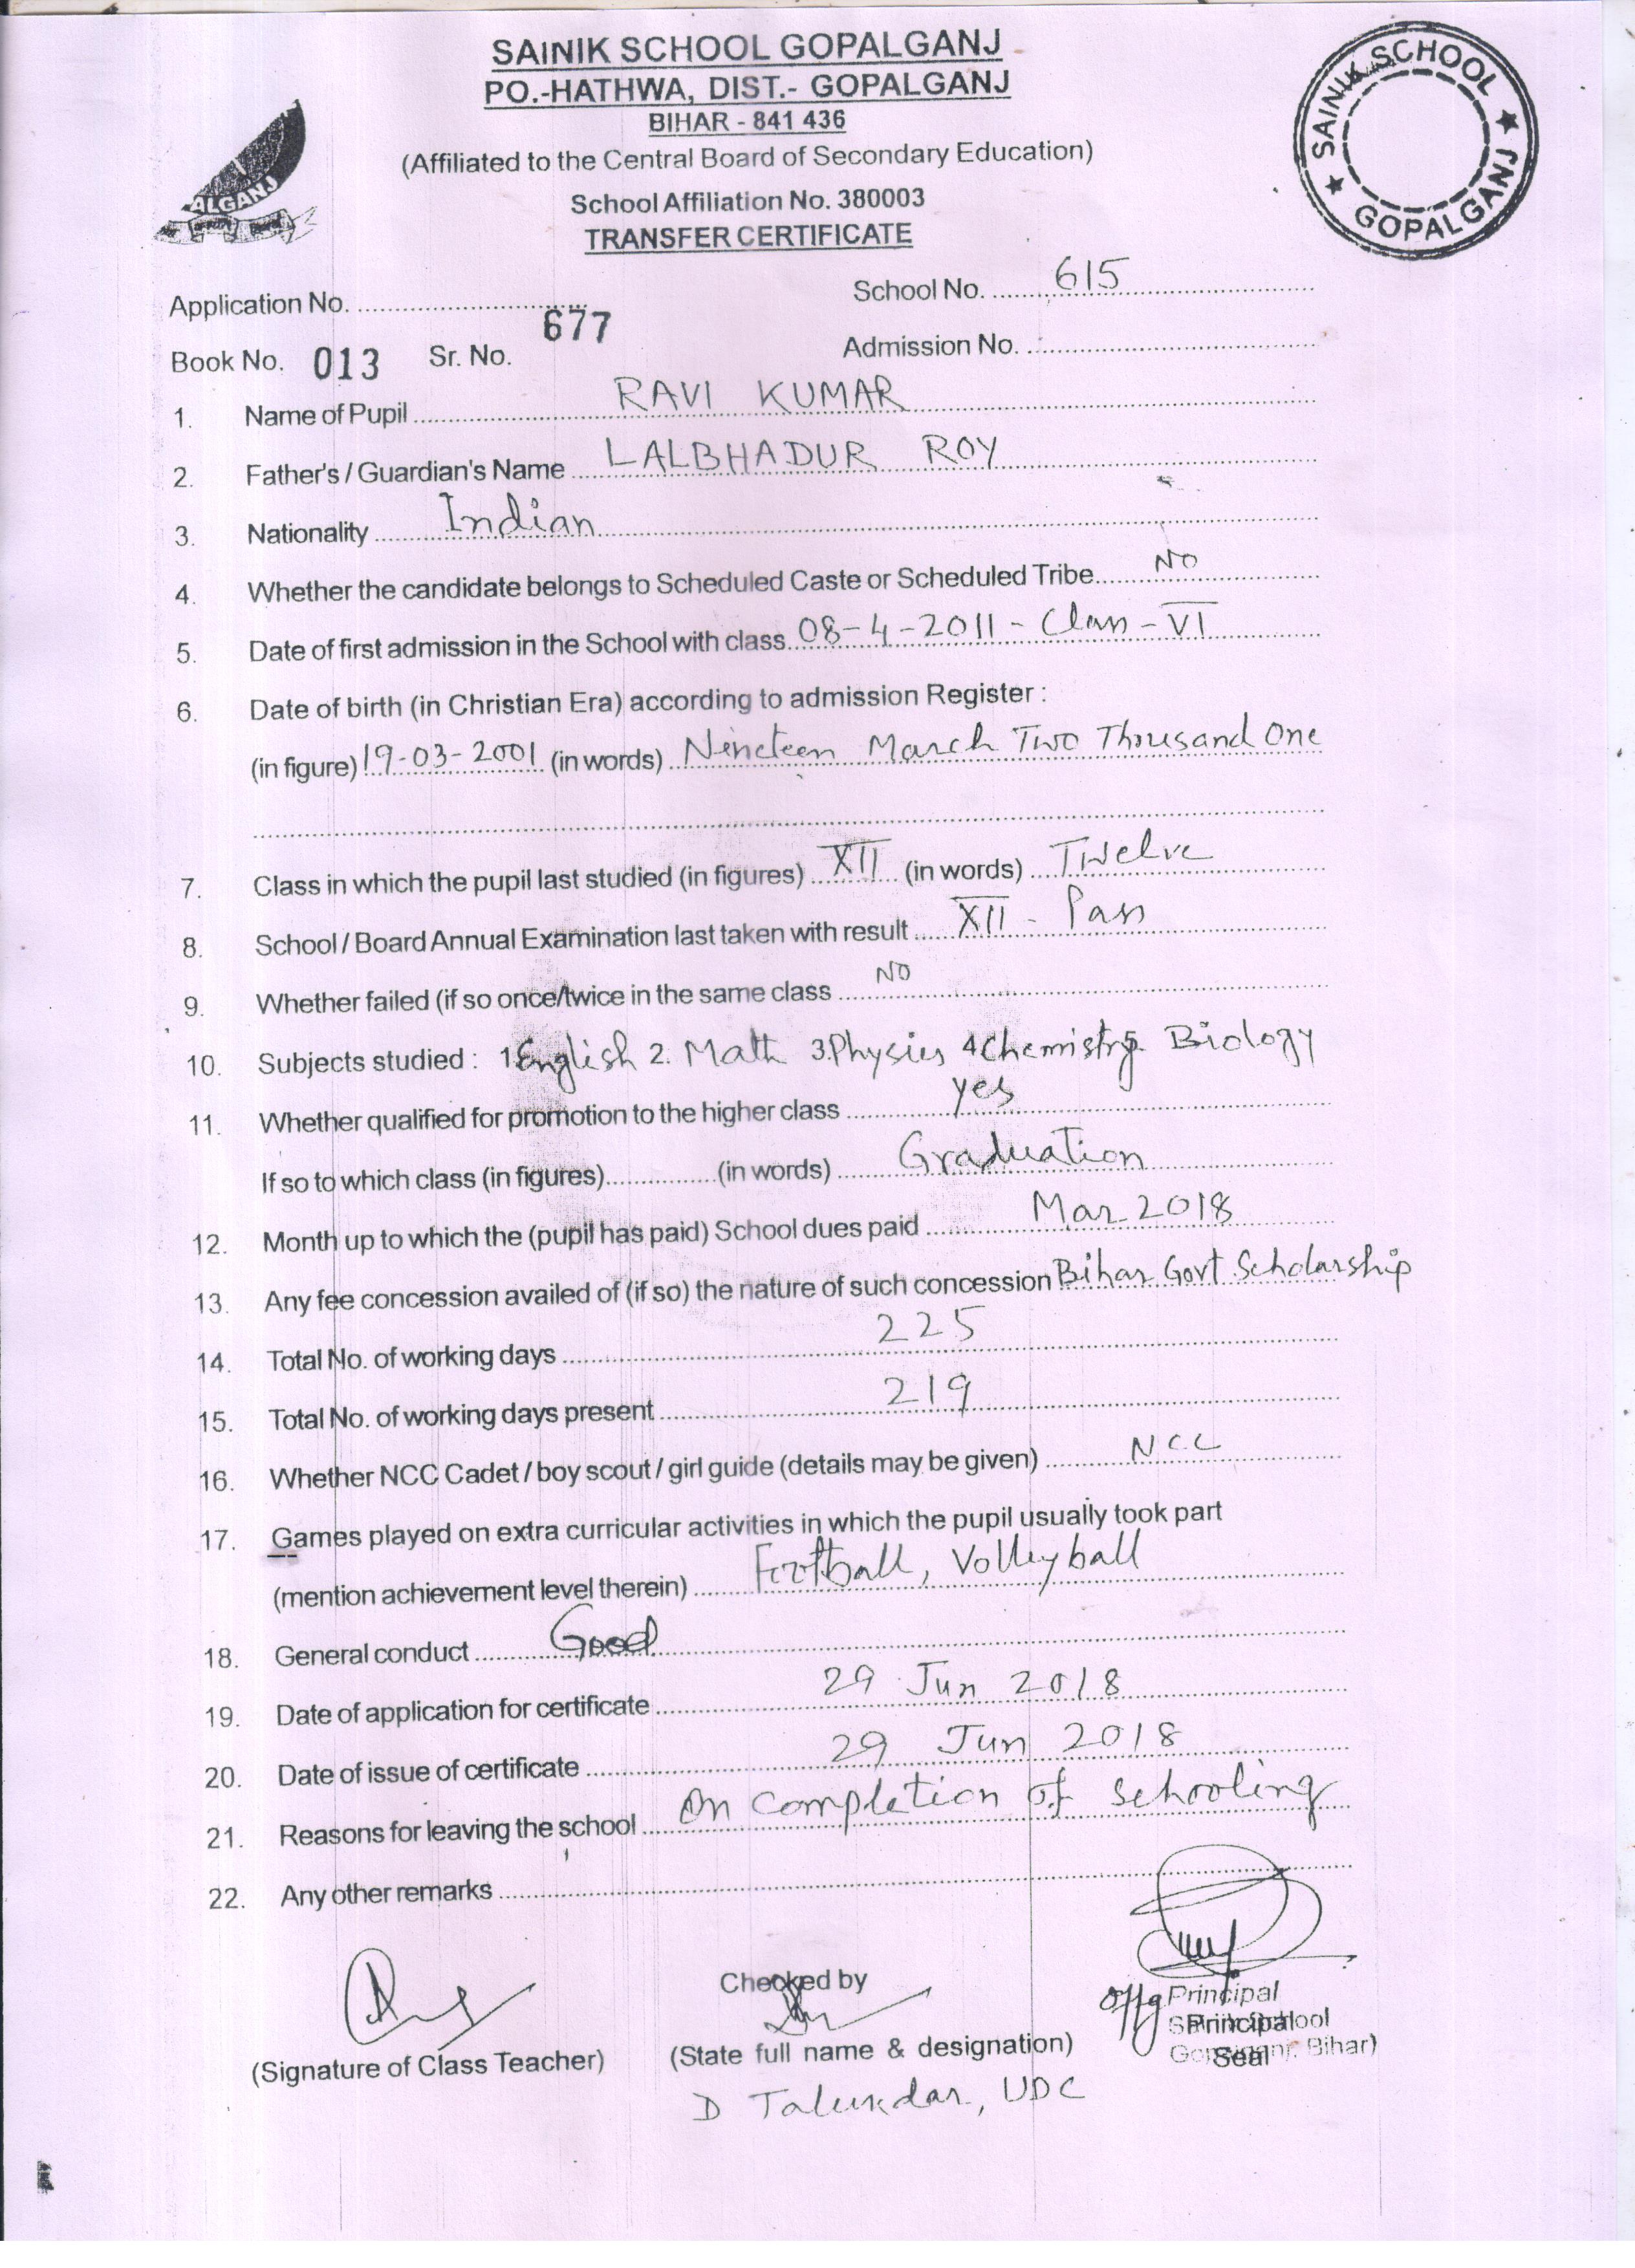 SAINIK SCHOOL GOPALGANJ
PO.-HATHWA, DIST.- GOPALGANJ
BIHAR - 841 436
(Affiliated to the Central Board of Secondary Education)
School Affiliation No. 380003
TRANSFER CERTIFICATE
ALGANJ
SAINIK SCHOOL ★ GOPALGANJ ★
Application No. .............................. School No. ........ 615 ..............................
Book No. 013 Sr. No. 677 Admission No. ..............................
1. Name of Pupil .................... RAVI KUMAR ....................
2. Father's / Guardian's Name .... LALBHADUR ROY ....................
3. Nationality .......... Indian ....................
4. Whether the candidate belongs to Scheduled Caste or Scheduled Tribe...... NO ..........
5. Date of first admission in the School with class. 08-4-2011 - Class - VI
6. Date of birth (in Christian Era) according to admission Register :
(in figure) 19-03-2001 (in words) Nineteen March Two Thousand One
7. Class in which the pupil last studied (in figures) XII (in words) Twelve
8. School / Board Annual Examination last taken with result ..... XII - Pass
9. Whether failed (if so once/twice in the same class ..... NO ..........
10. Subjects studied : 1. English 2. Math 3. Physics 4 Chemistry 5. Biology
11. Whether qualified for promotion to the higher class .......... yes ..........
If so to which class (in figures)................(in words) ....... Graduation ..........
12. Month up to which the (pupil has paid) School dues paid .......... Mar 2018
13. Any fee concession availed of (if so) the nature of such concession Bihar Govt Scholarship
14. Total No. of working days .......... 225 ..........
15. Total No. of working days present .......... 219 ..........
16. Whether NCC Cadet / boy scout / girl guide (details may be given) .......... NCC ..........
17. Games played on extra curricular activities in which the pupil usually took part
(mention achievement level therein) ....... Football, Volleyball ..........
18. General conduct .......... Good ..........
19. Date of application for certificate .......... 29 Jun 2018
20. Date of issue of certificate .......... 29 Jun 2018
21. Reasons for leaving the school ..... On completion of schooling
22. Any other remarks ..............................
Checked by
offg Principal
Principal School
Seal Bihar)
(Signature of Class Teacher) (State full name & designation)
D Talukdar, UDC